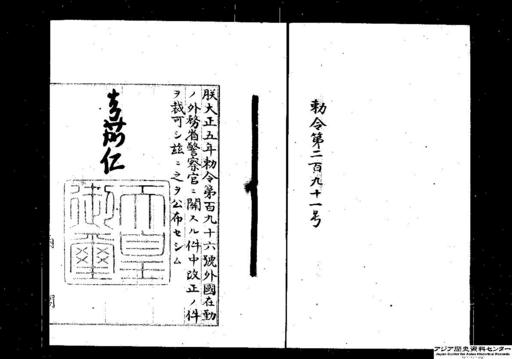 勅令第二百九十一号
朕大正五年勅令第百九十六號外國在勤
ノ外務省警察官ニ關スル件中改正ノ件
ヲ裁可シ茲ニ之ヲ公布セシム
嘉仁
天皇
御璽
アジア歴史資料センター
Japan Center for Asian Historical Records